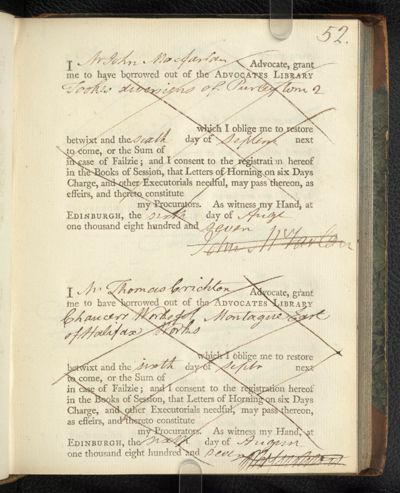 52.
I Mr John Macfarlan Advocate, grant
me to have borrowed out of the ADVOCATES LIBRARY
Tookes diversions of Purley tom 2
which I oblige me to restore
betwixt and the sixth day of Septem next
to come, or the Sum of
in case of Failzie; and I consent to the registrati n hereof
in the Books of Session, that Letters of Horning on six Days
Charge, and other Executorials needful, may pass thereon, as
effeirs, and thereto constitute
my Procurators. As witness my Hand, at
EDINBURGH, the sixth day of Augt
one thousand eight hundred and seven
John McFarlan
I Mr Thomas Crichton Advocate, grant
me to have borrowed out of the ADVOCATES LIBRARY
Chaucers Works of Montague Earl
of Halifax Works
which I oblige me to restore
betwixt and the sixth day of Septr next
to come, or the Sum of
in case of Failzie; and I consent to the registration hereof
in the Books of Session, that Letters of Horning on six Days
Charge, and other Executorials needful, may pass thereon,
as effeirs, and thereto constitute
my Procurators. As witness my Hand, at
EDINBURGH, the sixth day of August
one thousand eight hundred and seven